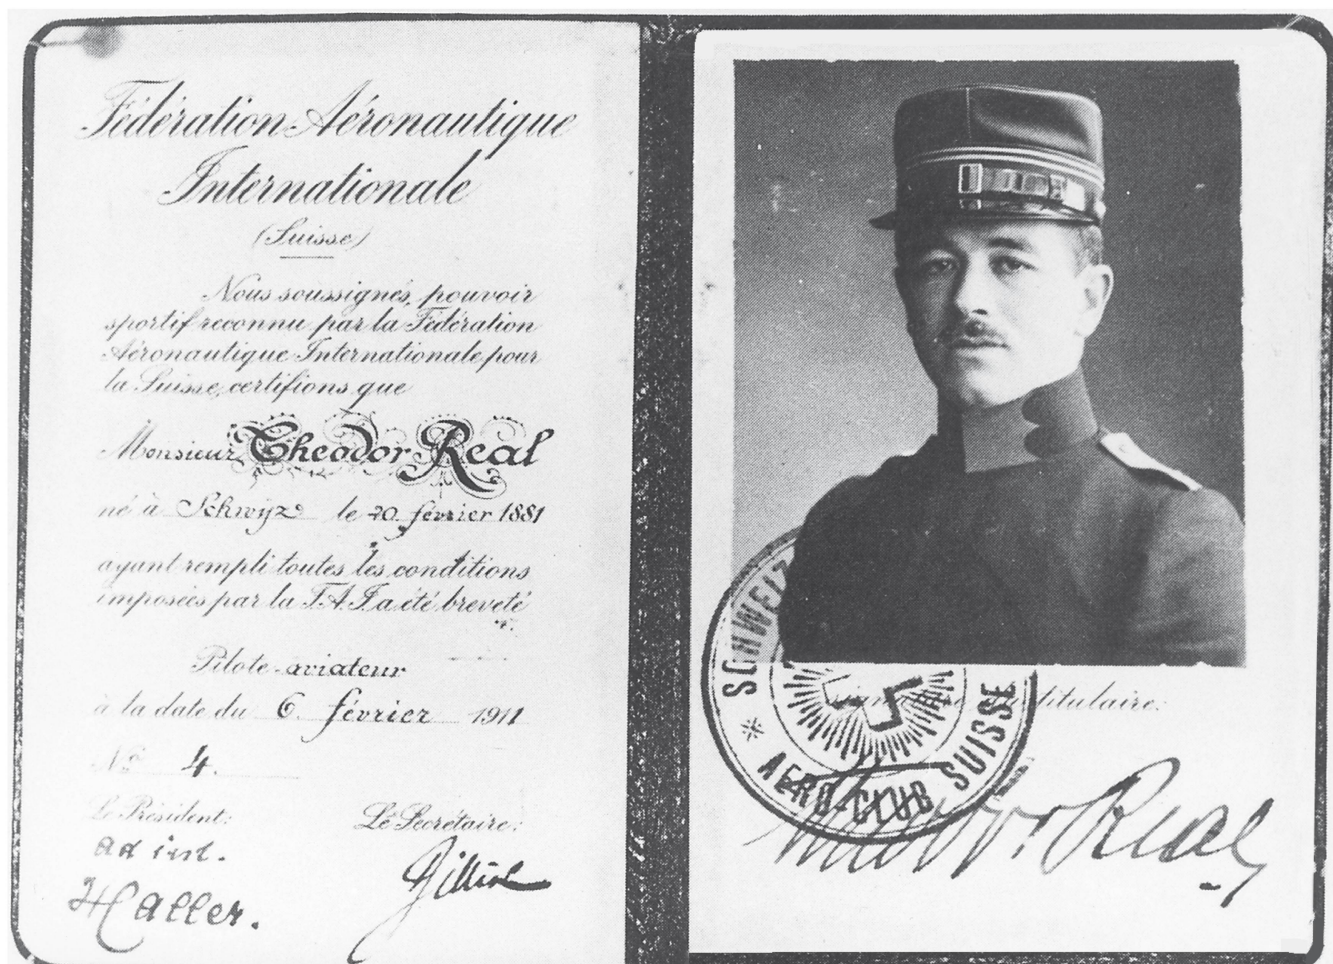 Fédération Aéronautique
Internationale
(Suisse)
Nous soussignés, pouvoir
sportif reconnu par la Fédération
Aéronautique Internationale pour
la Suisse, certifions que
Monsieur Theodor Real
né à Schwyz le 20. février 1881
ayant rempli toutes les conditions
imposées par la F.A.I. a été breveté
Pilote-aviateur
à la date du 6. février 1911
No 4.
Le Président: Le Secrétaire:
ad int.
Haller.
SCHWEIZ
AERO-CLUB SUISSE
titulaire:
Real